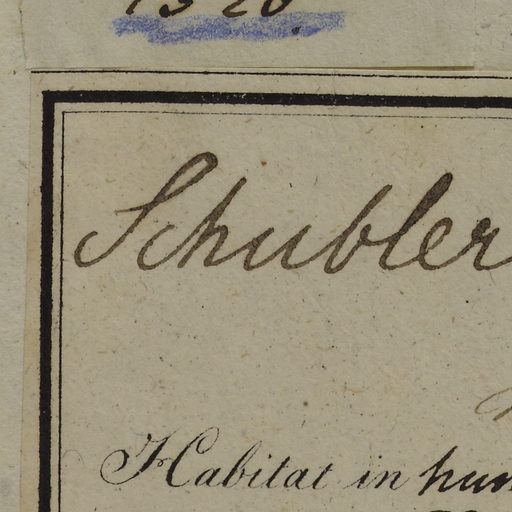 1320.
Schubler
Habitat in hum